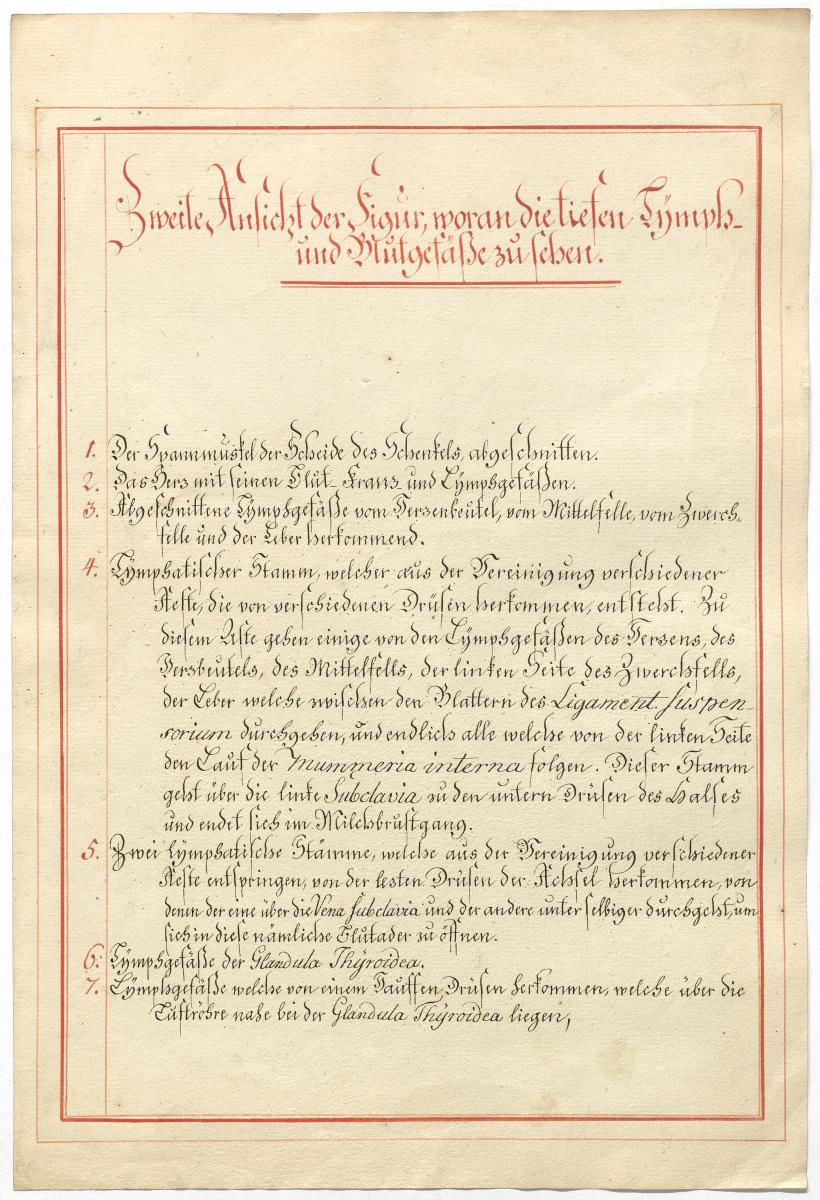 Zweite Ansicht der Figur, woran die tiefen Lÿmph-
und Blutgefäße zu sehen.
1. Der Spannmuskel der Scheide des Schenkels, abgeschnitten.
2. Das Herz mit seinen Blut- Kranz und Lÿmphgefäßen.
3. Abgeschnittene Lÿmphgefäße vom Herzenbeutel, vom Mittelfelle, vom Zwerch-
felle und der Leber herkommend.
4. Lÿmphatischer Stamm, welcher aus der Vereinigung verschiedener
Aeste, die von verschiedenen Drüsen herkommen, entsteht. Zu
diesem Aste gehen einige von den Lÿmphgefäßen des Herzens, des
Herzbeutels, des Mittelfells, der linken Seite des Zwerchfells,
der Leber welche zwischen den Blattern des Ligament. suspen-
sorium durchgehen, und endlich alle welche von der linken Seite
den Lauf der Mummeria interna folgen. Dieser Stamm
geht über die linke Subclavia zu den untern Drüsen des Halses
und endet sich im Milchbrustgang.
5. Zwei lÿmphatische Stämme, welche aus der Vereinigung verschiedener
Aeste entspringen, von der lesten Drüsen der Achsel herkommen, von
denen der eine über die Vena subclavia und der andere unter selbiger durchgeht, um
sich in diese nämliche Blutader zu öffnen.
6. Lÿmphgefäße der Glandula Thÿroidea.
7. Lÿmphgefäße welche von einem Hauffen Drüsen herkommen, welche über die
Luftröhre nahe bei der Glandula Thÿroidea liegen,